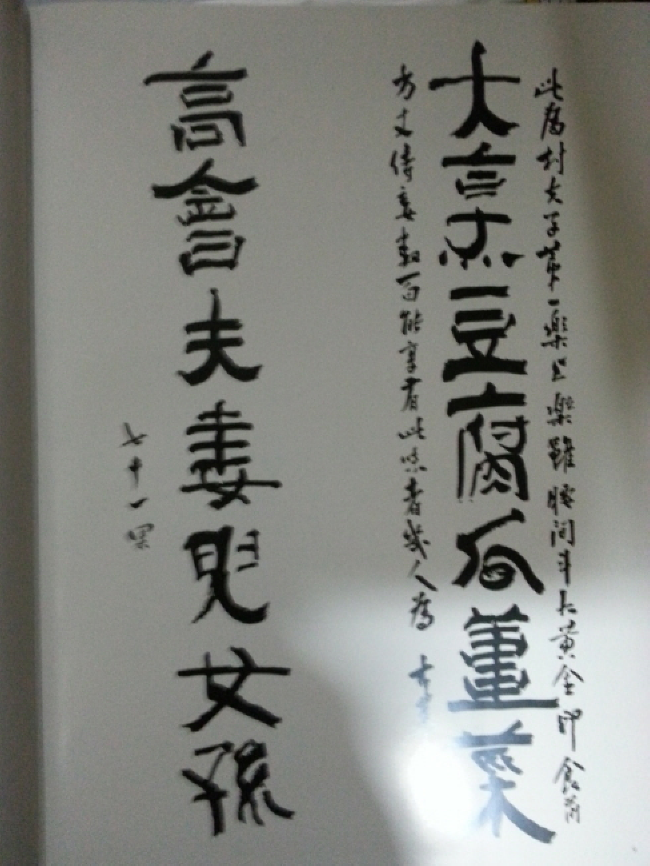 此爲村夫子第一樂上樂雖腰間斗大黃金印食前
大烹豆腐瓜薑菜
方丈侍妾數百能享有此味者幾人爲古
高會夫妻兒女孫
七十一果